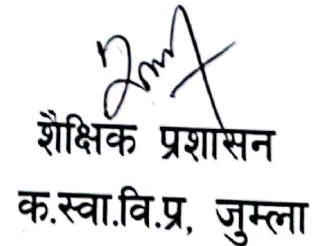 शैक्षिक प्रशासन
क.स्वा.वि.प्र, जुम्ला